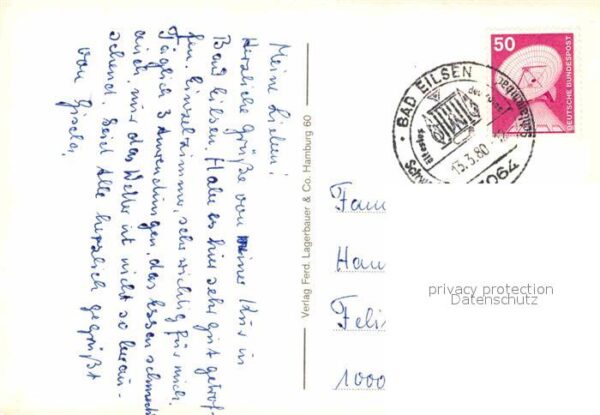 Meine Lieben!
Herzliche Grüße von meiner Kur in
Bad Eilsen. Habe es hier sehr gut getrof-
fen. Einzelzimmer, sehr wichtig für mich.
Täglich 3 Anwendungen, das Essen schmeckt
auch, nur das Wetter ist nicht so berau-
schend. Seid Alle herzlich gegrüßt
von Gisela.
Verlag Ferd. Lagerbauer & Co. Hamburg 60
50
DEUTSCHE BUNDESPOST
BAD EILSEN
13.3.80
3064
Fam
Han
Feli
1000
privacy protection
Datenschutz